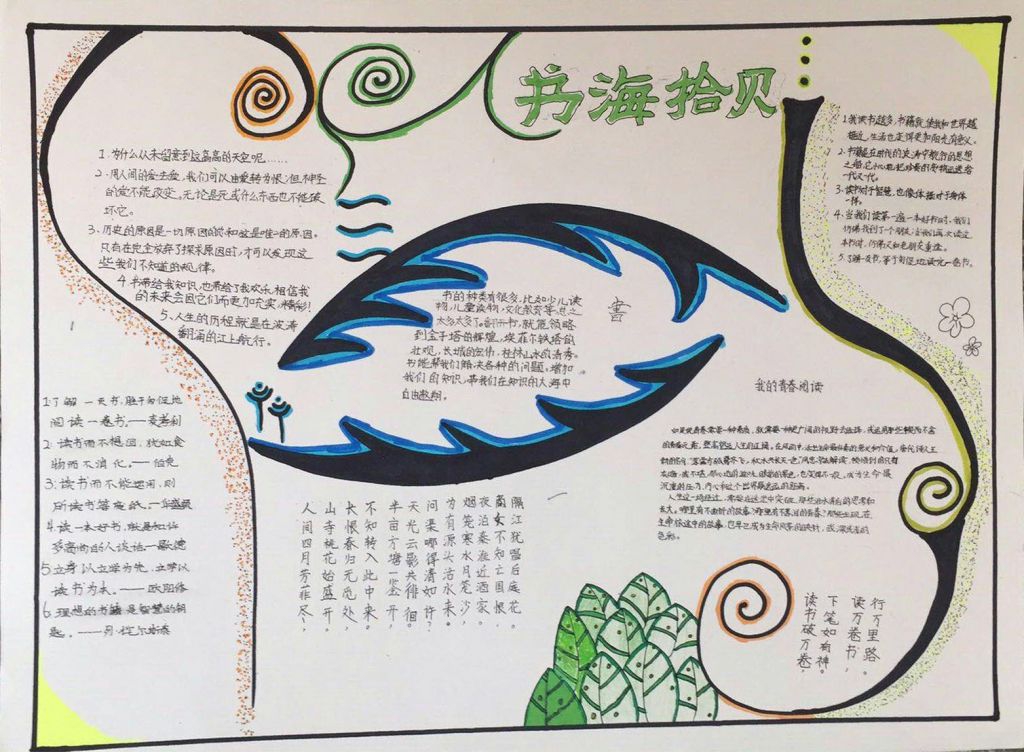 书海拾贝
1. 为什么从未留意到这高高的天空呢……
2. 用人间的爱去爱,我们可以由爱转为恨;但神圣
的爱不能改变。无论是死或什么东西也不能破
坏它。
3. 历史的原因是一切原因的总和这是唯一的原因。
只有在完全放弃了探求原因时,才可以发现这
些我们不知道的规律。
4 书带给我知识,也带给了我欢乐,相信我
的未来会因它们而更加充实,精彩!
5、人生的历程就是在波涛
翻涌的江上航行。
书的种类有很多,比如少儿读
物,儿童读物,文化教育等,总之
太多太多了。翻开书,就能领略
到金字塔的辉煌,埃菲尔铁塔的
壮观,长城的宏伟,桂林山水的清秀。
书能帮我们解决各种的问题,增加
我们的知识,带我们在知识的大海中
自由遨翔。
書
1. 我读书越多,书籍就使我和世界越
接近,生活也变得更加阳光有意义。
2. 书籍是在时代的波涛中航行的思想
之船,它小心地把珍贵的货物运送给
一代又一代。
3. 读书对于智慧,也像体操对于身体
一样。
4. 当我们读第一遍一本好书时,我们
仿佛找到了一个朋友;当我们再次读这
本书时,仿佛又和老朋友重逢。
5. 了解一页书,等于匆促地读完一卷书。
1. 了解一天书,胜于匆促地
阅读一卷书。——麦考利
2. 读书而不想回,犹如食
物而不消化。——伯克
3. 读书而不能运用,则
所读书等废纸。——华盛顿
4. 读一本好书,就是和许
多高尚的人谈话——歌德
5 立身以立学为先,立学以
读书为本。——欧阳修
6. 理想的书籍是智慧的钥
匙。——列·托尔斯泰
我的青春阅读
隔江犹唱后庭花。
商女不知亡国恨,
夜泊秦淮近酒家。
烟笼寒水月笼沙,
为有源头活水来。
问渠哪得清如许?
天光云影共徘徊。
半亩方塘一鉴开,
不知转入此中来。
长恨春归无觅处,
山寺桃花始盛开。
人间四月芳菲尽,
行万里路。
读万卷书,
下笔如有神。
读书破万卷,